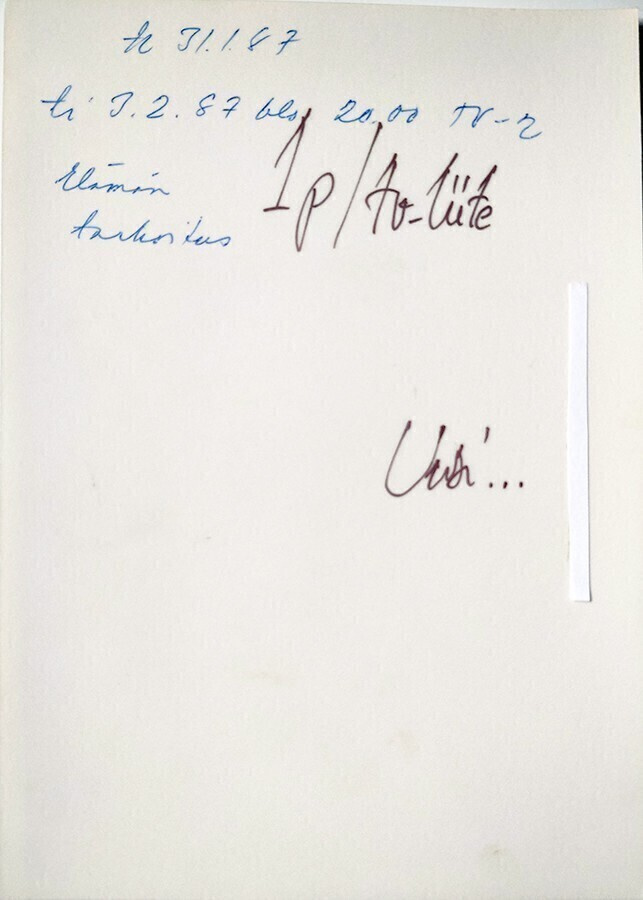 31.1.87
ti 3.2.87 klo 20.00 TV-2
Elämän
tarkoitus
1p/tv-liite
Uusi...